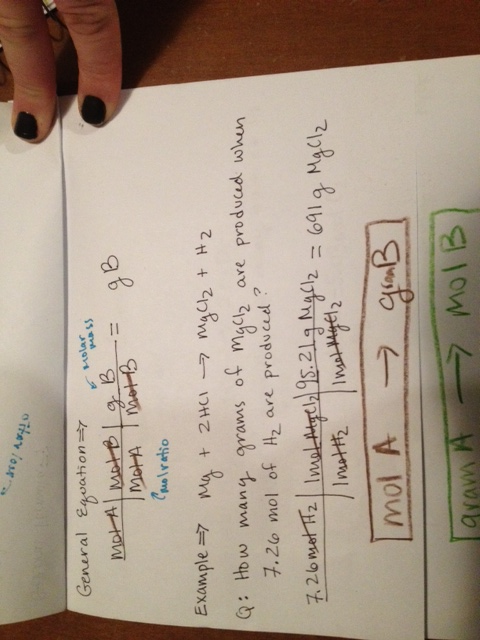 General Equation ⇒
mol A | mol B | g B = g B
mol A | mol B
molar mass
mol ratio
Example ⇒ Mg + 2HCl → MgCl2 + H2
Q: How many grams of MgCl2 are produced when
7.26 mol of H2 are produced?
7.26 mol H2 | 1 mol MgCl2 | 95.21 g MgCl2 = 691 g MgCl2
1 mol H2 | 1 mol MgCl2
mol A → gram B
gram A → mol B